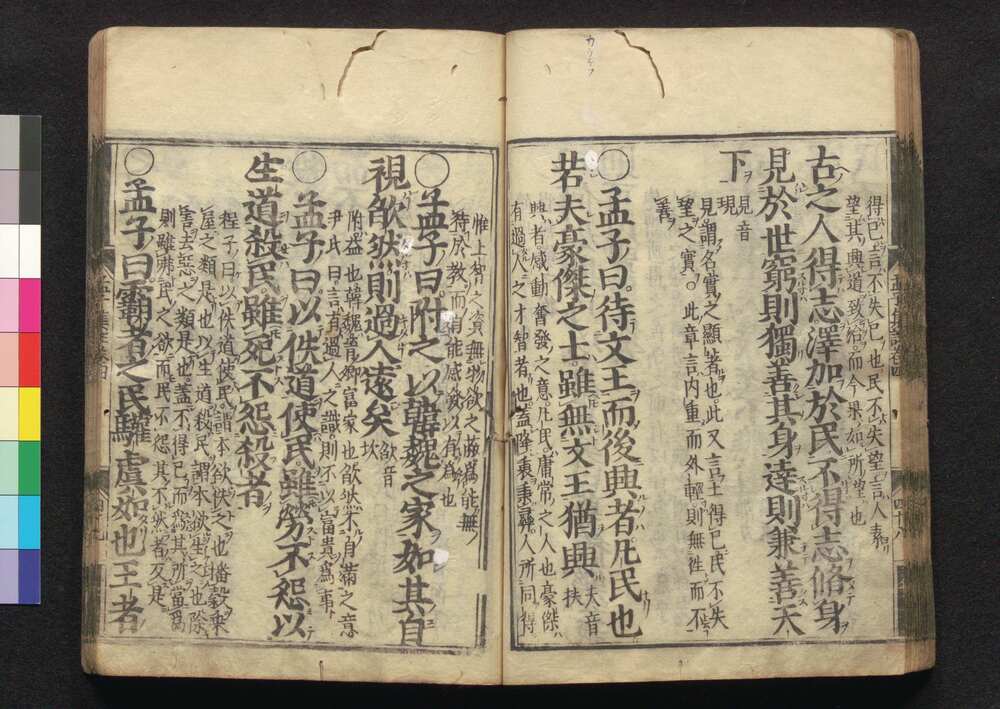 得己言不失己也民不失望言人素
望其興道致治而今果如所望也
古之人得志澤加於民不得志脩身
見於世窮則獨善其身達則兼善天
下
見音
現
見謂名實之顯著也此又言士得己民不失
望之實。此章言內重而外輕則無徃而不
善
〇孟子曰待文王而後興者凡民也
若夫豪傑之士雖無文王猶興
夫音
扶
興者感動奮發之意凡民庸常之人也豪傑
有過人之才智者也蓋降衷秉彛人所同得
惟上智之資無物欲之蔽爲能無
待於教而自能感發以有爲也
〇孟子曰附之以韓魏之家如其自
視欿然則過人遠矣
欿音
坎
附益也韓魏晉卿富家也欿然不自滿之意
尹氏曰言有過人之識則不以富貴爲事
〇孟子曰以佚道使民雖勞不怨以
生道殺民雖死不怨殺者
程子曰以佚道使民謂本欲佚之也播穀乘
屋之類是也以生道殺民謂本欲生之也除
害去惡之類是也蓋不得已而爲其所當爲
則雖咈民之欲而民不怨其不然者反是
〇孟子曰霸者之民驩虞如也王者